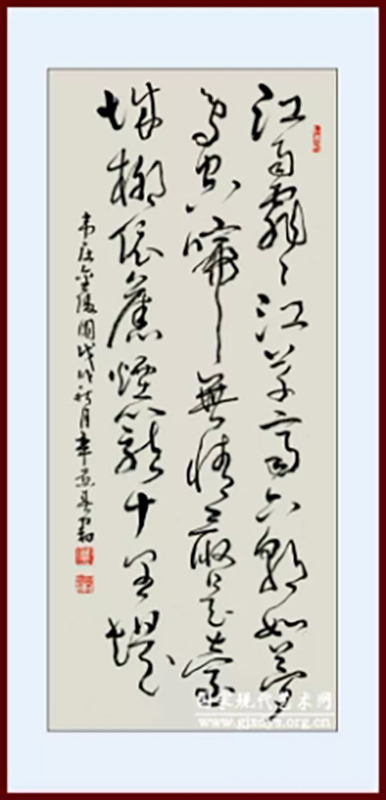 江雨霏霏江草齊六朝如夢
鳥空啼無情最是臺
城柳依舊煙籠十里堤
韋莊金陵圖戊戌秋月
国家现代艺术网
www.gjxdys.org.cn